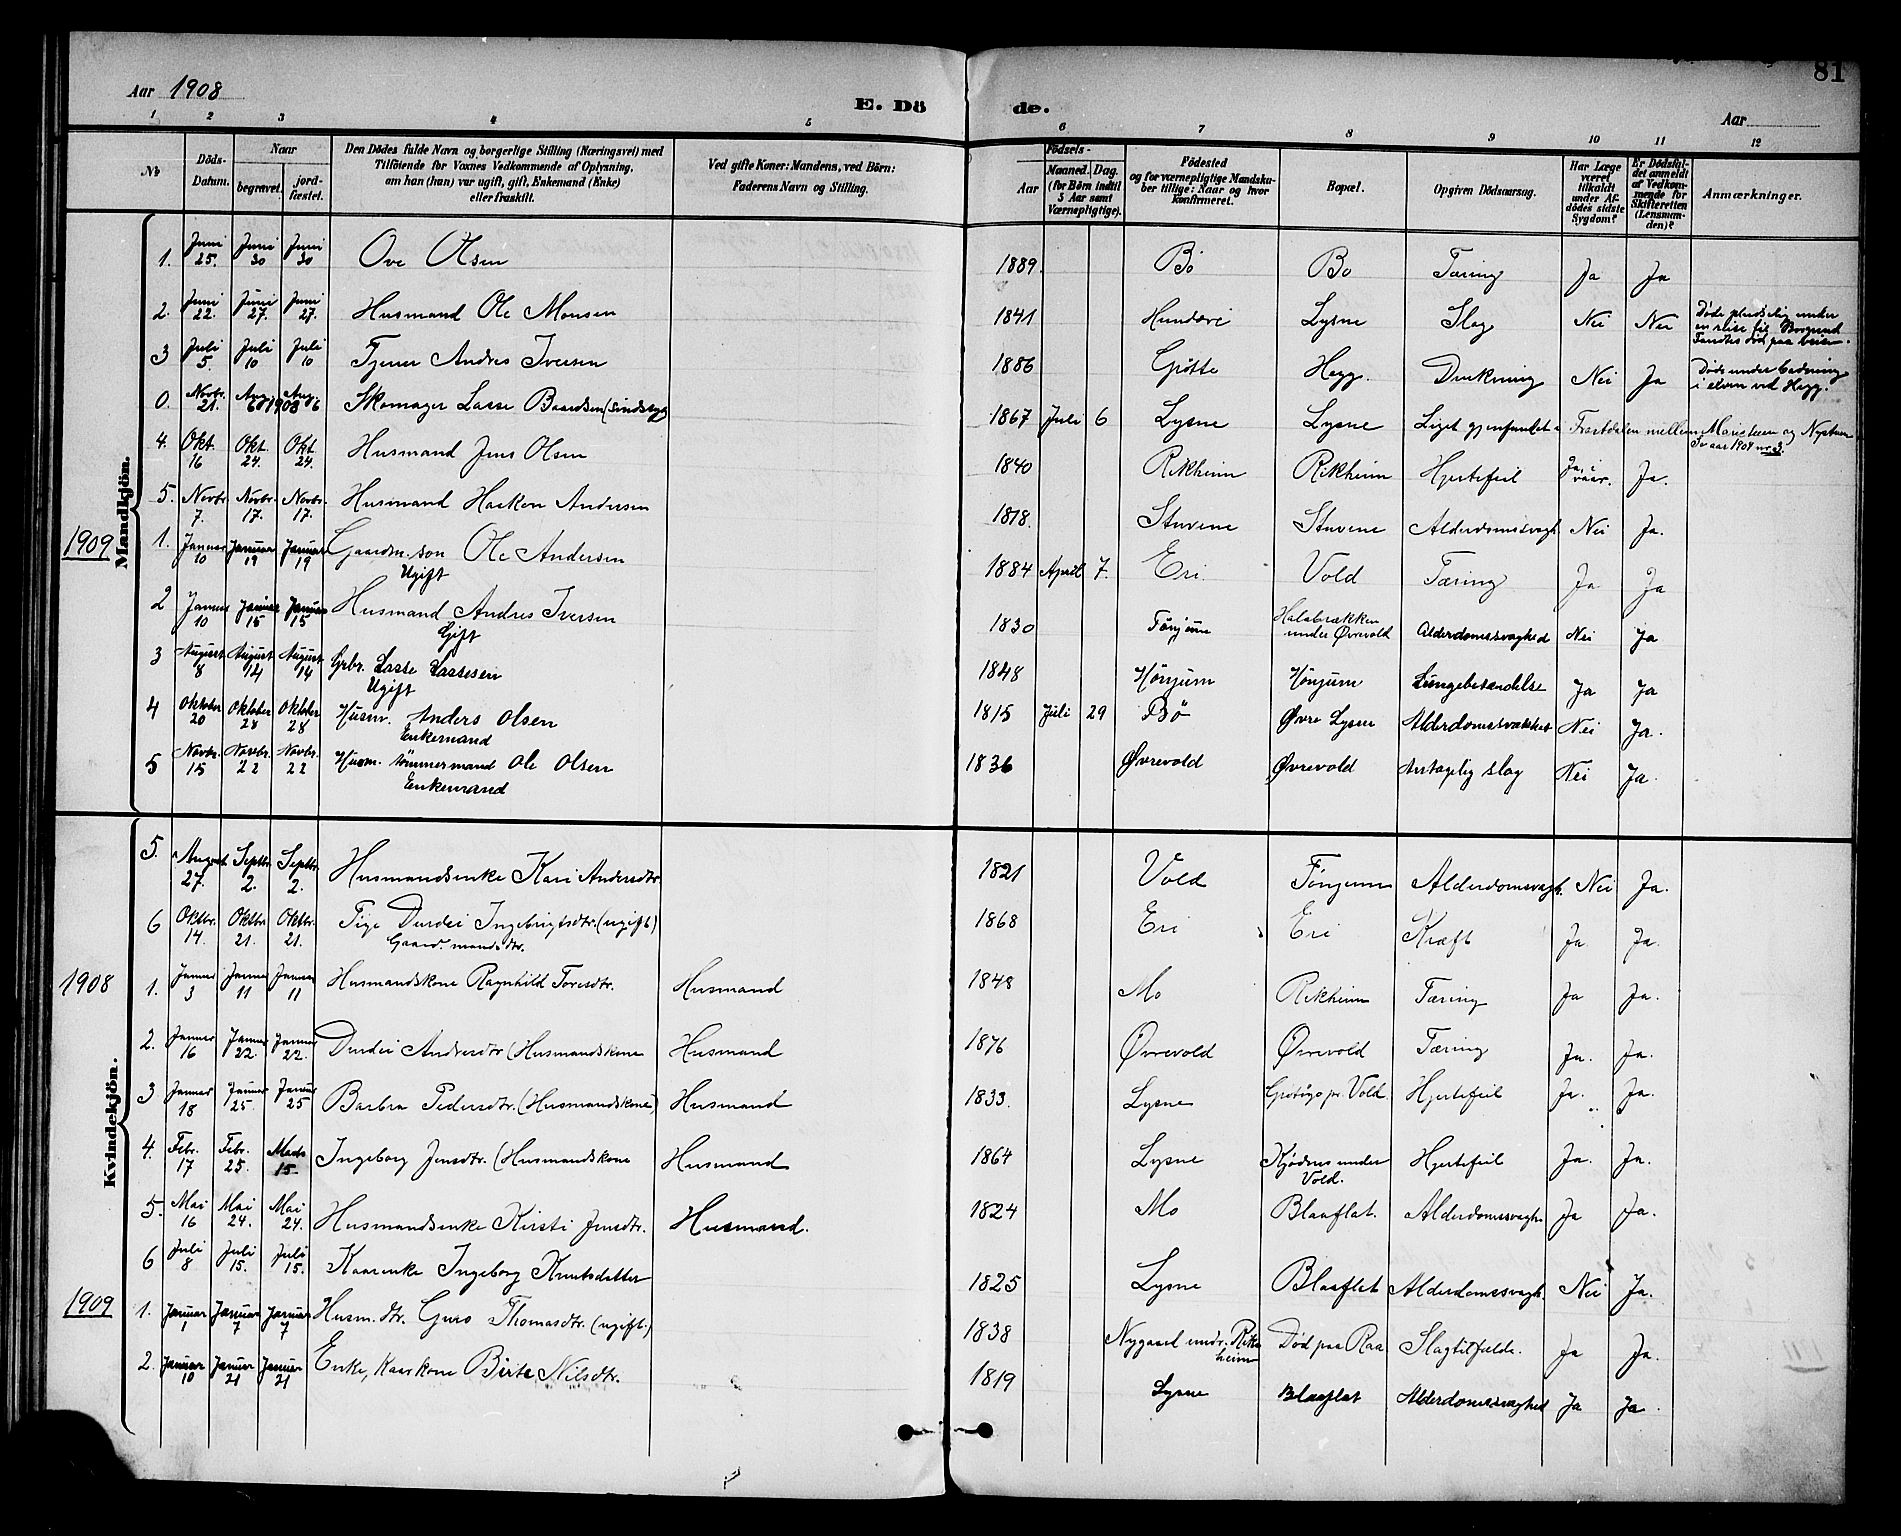 Aar 1908
E. Dö de.
Aar
81
1 2 3 4 5 6 7 8 9 10 11 12
No
Döds-Datum.
Naar
begravet.
jordfæstet.
Den Dödes fulde Navn og borgerlige Stilling (Næringsvei) med
Tilföiende for Voxnes Vedkommende af Oplysning,
om han (hun) var ugift, gift, Enkemand (Enke)
eller fraskilt.
Ved gifte Koner: Mandens, ved Börn:
Faderens Navn og Stilling.
Födsels-
Aar
Maaned. Dag.
(for Börn indtil
5 Aar samt
Værnepligtige).
Födested
og for værnepligtige Mandskaber tillige: Naar og hvor
konfirmeret.
Bopæl.
Opgiven Dödsaarsag.
Har Læge
været
tilkaldt
under Afdödes sidste
Sygdom?
Er Dödsfaldet anmeldt
af Vedkommende for
Skifteretten
(Lensmanden)?
Anmærkninger.
Mandkjön.
1. Juni 25. Juni 30 Juni 30 Ove Olsen 1889. Bö Bö Tæring Ja Ja
2. Juni 22. Juni 27. Juni 27. Husmand Ole Monsen 1841 Hundere Lysne Slag Nei Nei Døde pludselig under en reise til Borgund Fandtes død paa veien.
3 Juli 5. Juli 10 Juli 10 Tjener Andres Iversen 1886 Grøtte Hegg. Drukning Nei Ja Døde under badning i elven ved Hegg.
0. Novbr. 21. Aug. 6 1908 Aug. 6 Skomager Lasse Baardsen (sindssyg 1867 Juli 6 Lysne Lysne Liget gjenfundet i Frostdalen mellem Maristuen og Nystuen Sv aar 1907 nr 3.
4. Okt. 16 Okt. 24. Okt. 24. Husmand Jens Olsen 1840 Rikheim Rikheim Hjertefeil Ja, i vaar. Ja.
5. Novbr. 7. Novbr. 17. Novbr. 17. Husmand Haakon Andersen 1818. Stuvene Stuvene Alderdomssvagh. Nei Ja.
1909
1. Januar 10 Januar 19 Januar 19 Gaardm. søn Ole Andersen Ugift 1884 April 7. Eri Vold Tæring Ja Ja
2 Januar 10 Januar 15 Januar 15 Husmand Andres Iversen Gift 1830 Tønjum Halabrækken under Øvrevold Alderdomssvaghed Nei Ja
3 August 8 August 14 August 14 Grbr. Lasse Lassesen Ugift 1848 Hønjum Hønjum Lungebetændelse Ja Ja
4 Oktober 20 Oktober 28 Oktober 28 Husm. Anders Olsen Enkemand 1815 Juli 29 Bø Øvre Lysne Alderdomssvækkelse Nei Ja.
5 Novbr. 15 Novbr. 22 Novbr. 22 Husm. tømmermand Ole Olsen Enkemand 1836 Øvrevold Øvrevold Antagelig slag Nei Ja.
Kvindekjön.
5. August 27. Septbr. 2. Septbr. 2. Husmandsenke Kari Andersdtr. 1821 Vold Tønjum Alderdomsvagh. Nei Ja.
6 Oktbr. 14. Oktbr 21. Oktbr. 21. Pige Durdei Ingebrigtsdtr. (ugift) Gaardmandsdtr. 1868 Eri Eri Kræft Ja Ja.
1908
1. Januar 3 Januar 11 Januar 11 Husmandskone Ragnhild Toresdtr. Husmand 1848 Mo Rikheim Tæring Ja Ja.
2. Januar 16 Januar 22. Januar 22. Durdei Andersdtr. (Husmandskone Husmand 1876 Øvrevold Øvrevold Tæring Ja. Ja.
3 Januar 18 Januar 25. Januar 25 Barbra Pedersdtr. (Husmandskone) Husmand 1833. Lysne pr. Vold. Hjertefeil Ja. Ja.
4. Febr. 17 Febr. 25. Marts 15. Ingeborg Jensdtr. (Husmandskone Husmand 1864 Lysne Kjødnes under Vold. Hjertefeil Ja. Ja.
5. Mai 16 Mai 24. Mai 24. Husmandsenke Kirsti Jensdtr. Husmand. 1824 Mo Blaaflat. Alderdomssvagh. Ja Ja.
6 Juli 8 Juli 15. Juli 15. Kaarenke Ingeborg Knutsdatter 1825 Lysne Blaaflat Alderdomssvagh. Nei Ja.
1909
1. Januar 1 Januar 7 Januar 7 Husm. dtr. Guro Thomasdtr. (ugift.) 1838 Nygaard undr. Rikheim Død paa Raa Slagtilfælde. Ja Ja.
2. Januar 10 Januar 21 Januar 21 Enke, Kaarkone Birte Nilsdtr. 1819 Lysne Blaaflat Alderdomssvaghed Ja Ja.